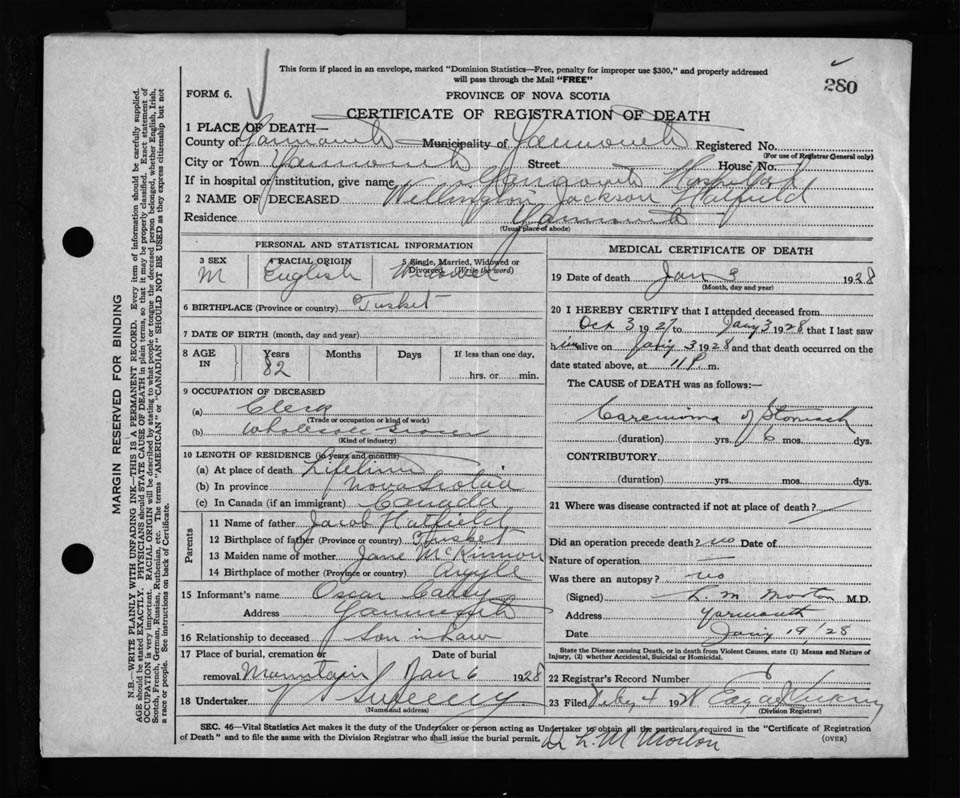 This form if placed in an envelope, marked "Dominion Statistics—Free, penalty for improper use $300," and properly addressed
will pass through the Mail "FREE"
280
FORM 6.
PROVINCE OF NOVA SCOTIA
CERTIFICATE OF REGISTRATION OF DEATH
1 PLACE OF DEATH—
County of Yarmouth Municipality of Yarmouth Registered No.
(For use of Registrar General only)
City or Town Yarmouth Street House No.
If in hospital or institution, give name Yarmouth Hospital
2 NAME OF DECEASED Wellington Jackson Hatfield
Residence Yarmouth
(Usual place of abode)
PERSONAL AND STATISTICAL INFORMATION
3 SEX 4 RACIAL ORIGIN 5 Single, Married, Widowed or Divorced (Write the word)
M English Widower
6 BIRTHPLACE (Province or country) Tusket
7 DATE OF BIRTH (month, day and year)
8 AGE IN Years Months Days If less than one day,
82 hrs. or min.
9 OCCUPATION OF DECEASED
(a) Clerk
(Trade or occupation or kind of work)
(b) Wholesale Grocer
(Kind of industry)
10 LENGTH OF RESIDENCE (in years and months)
(a) At place of death Lifetime
(b) In province Nova Scotia
(c) In Canada (if an immigrant) Canada
Parents
11 Name of father Jacob Hatfield
12 Birthplace of father (Province or country) Tusket
13 Maiden name of mother Jane McKinnon
14 Birthplace of mother (Province or country) Argyle
15 Informant's name Oscar
Address Yarmouth
16 Relationship to deceased Son in Law
17 Place of burial, cremation or Date of burial
removal Mountain Jan 6 1928
18 Undertaker V Sweeny
(Name and address)
MEDICAL CERTIFICATE OF DEATH
19 Date of death Jan 3 1928
(Month, day and year)
20 I HEREBY CERTIFY that I attended deceased from
Oct 3 1927 to Jan'y 3 1928 that I last saw
him alive on Jan'y 3 1928 and that death occurred on the
date stated above, at 11 P m.
The CAUSE of DEATH was as follows:—
Carcinoma of Stomach
(duration) yrs. 6 mos. dys.
CONTRIBUTORY
(duration) yrs. mos. dys.
21 Where was disease contracted if not at place of death?
Did an operation precede death? no Date of
Nature of operation
Was there an autopsy? no
(Signed) L. M. Morton M.D.
Address Yarmouth
Date Jan'y 19/28
State the Disease causing Death, or in death from Violent Causes, state (1) Means and Nature of
Injury, (2) whether Accidental, Suicidal or Homicidal.
22 Registrar's Record Number 6
23 Filed Feby 4 1928
(Division Registrar)
SEC. 46—Vital Statistics Act makes it the duty of the Undertaker or person acting as Undertaker to obtain all the particulars required in the "Certificate of Registration
of Death" and to file the same with the Division Registrar who shall issue the burial permit.
(OVER)
Dr L. M Morton
MARGIN RESERVED FOR BINDING
N.B.—WRITE PLAINLY WITH UNFADING INK—THIS IS A PERMANENT RECORD. Every item of information should be carefully supplied.
AGE should be stated EXACTLY. PHYSICIANS should STATE CAUSE OF DEATH in plain terms, so that it may be properly classified. Exact statement of
OCCUPATION is very important. RACIAL ORIGIN will be described by stating to what people or tongue the deceased person belonged, whether English, Irish,
Scotch, French, German, Russian, Ruthenian, etc. The terms "AMERICAN" or "CANADIAN" SHOULD NOT BE USED as they express citizenship but not
a race or people. See instructions on back of Certificate.